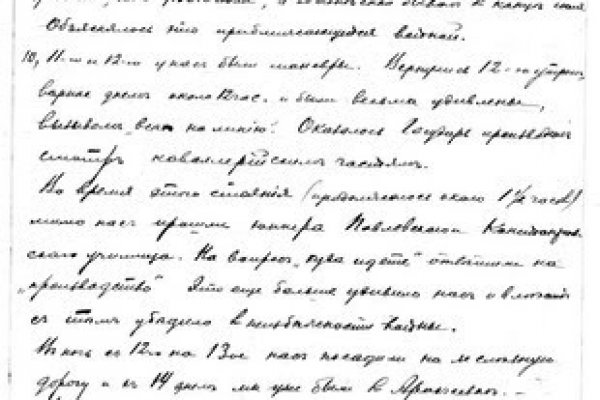 Объяснялось это приближающейся войной.
10, 11-го и 12-го у нас были маневры. Вернулись 12-го утром,
вернее днем около 12 час. и были весьма удивлены,
вызовом "всех на линию". Оказалось Государь производил
смотр кавалерийским частям.
Во время этого стояния (продолжалось около 1½ часов)
мимо нас прошли юнкера Павловского Константинов
ского училища. На вопрос "куда идете" отвечали на
"производство". Это еще больше удивило нас и
с тем убедило в неизбежности войны.
В ночь с 12го на 13ое нас посадили на железную
дорогу и в 14 днем мы уже были в